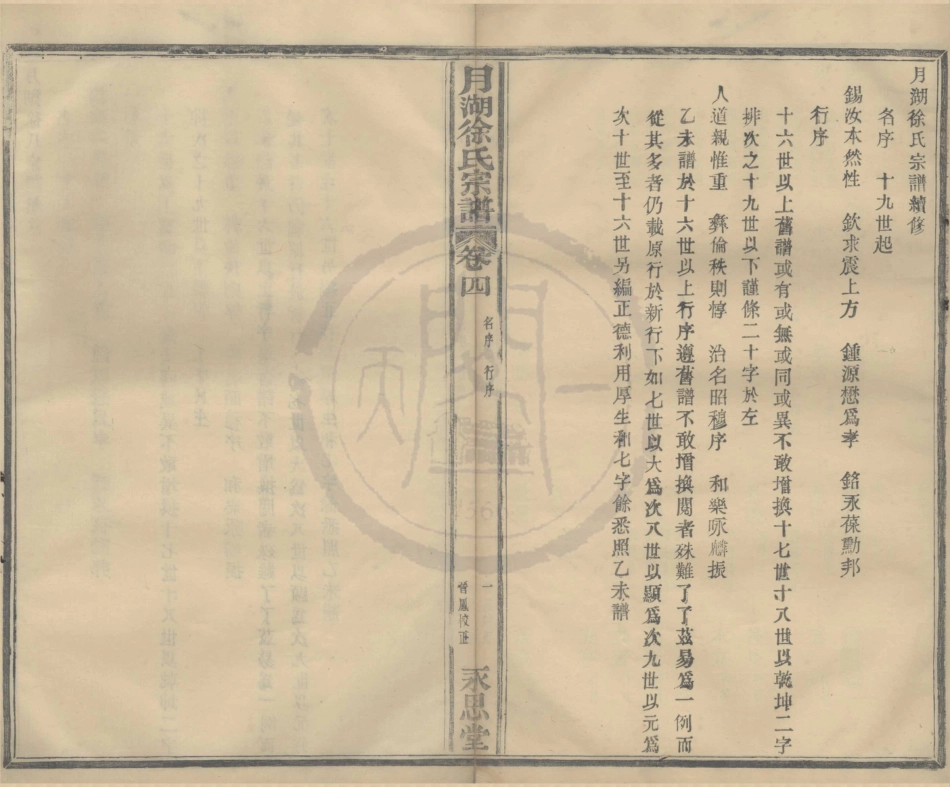 月湖徐氏宗譜續修
名序　十九世起
錫汝本然性　欽求震上方　鍾源懋爲孝　銘永葆勳邦
行序
十六世以上舊譜或有或無或同或異不敢增換十七世十八世以乾坤二字
排次之十九世以下謹條二十字於左
人道親惟重　彝倫秩則惇　治名昭穆序　和樂咏麟振
乙未譜於十六世以上行序遵舊譜不敢增換閱者殊難了了茲易爲一例而
從其多者仍載原行於新行下如七世以大爲次八世以顯爲次九世以元爲
次十世至十六世另編正德利用厚生和七字餘悉照乙未譜
月湖徐氏宗譜
卷四
名序　行序
一
永思堂